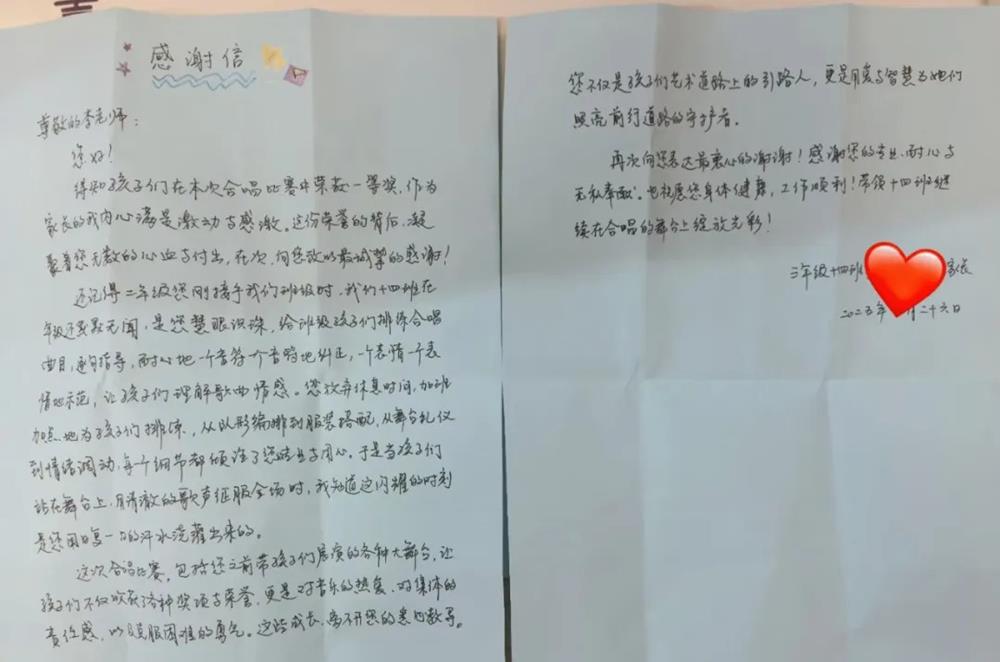 感谢信
尊敬的李老师：
您好！
得知孩子们在本次合唱比赛中荣获一等奖，作为
家长的我内心满是激动与感激。这份荣誉的背后，凝
聚着您无数的心血与付出，在次，向您致以最诚挚的感谢！
还记得二年级您刚接手我们班级时，我们十四班在
年级还默默无闻，是您慧眼识珠，给班级孩子们排练合唱
曲目，逐句指导，耐心地一个音符一个音符地纠正，一个表情一个表
情地示范，让孩子们理解歌曲情感。您放弃休息时间，加班
加点地为孩子们排练，从队形编排到服装搭配，从舞台礼仪
到情绪调动，每个细节都倾注了您的专业与用心。于是当孩子们
站在舞台上，用清澈的歌声征服全场时，我知道这闪耀的时刻
是您用日复一日的汗水浇灌出来的。
这次合唱比赛，包括您之前带孩子们展演的各种大舞台，让
孩子们不仅收获了各种奖项与荣誉，更是对音乐的热爱、对集体的
责任感，以及克服困难的勇气。这些成长，离不开您的悉心教导。
您不仅是孩子们艺术道路上的引路人，更是用爱与智慧为她们
照亮前行道路的守护者。
再次向您表达最衷心的谢谢！感谢您的专业、耐心与
无私奉献。也祝愿您身体健康，工作顺利！带领十四班继
续在合唱的舞台上绽放光彩！
三年级十四班 家长
二〇二五年 月二十六日